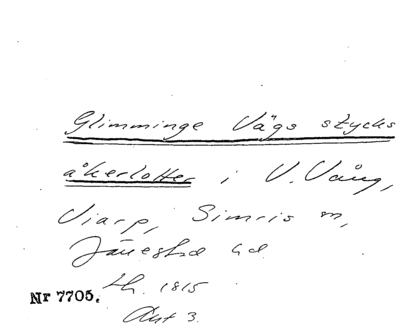 Glimminge Vägs stycks
åkerlotter i V. Vång,
Viarp, Simris m,
Järrestad hd
Lh. 1815
Nr 7705.
Akt 3.